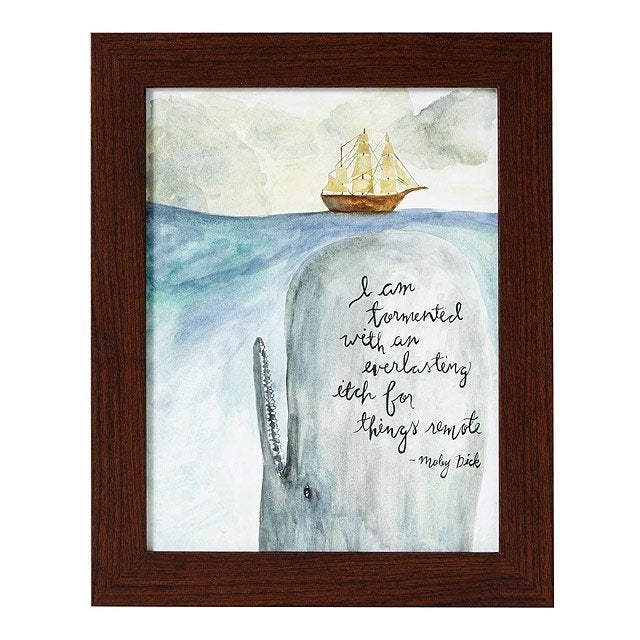 I am
tormented
with an
everlasting
itch for
things remote
- Moby Dick